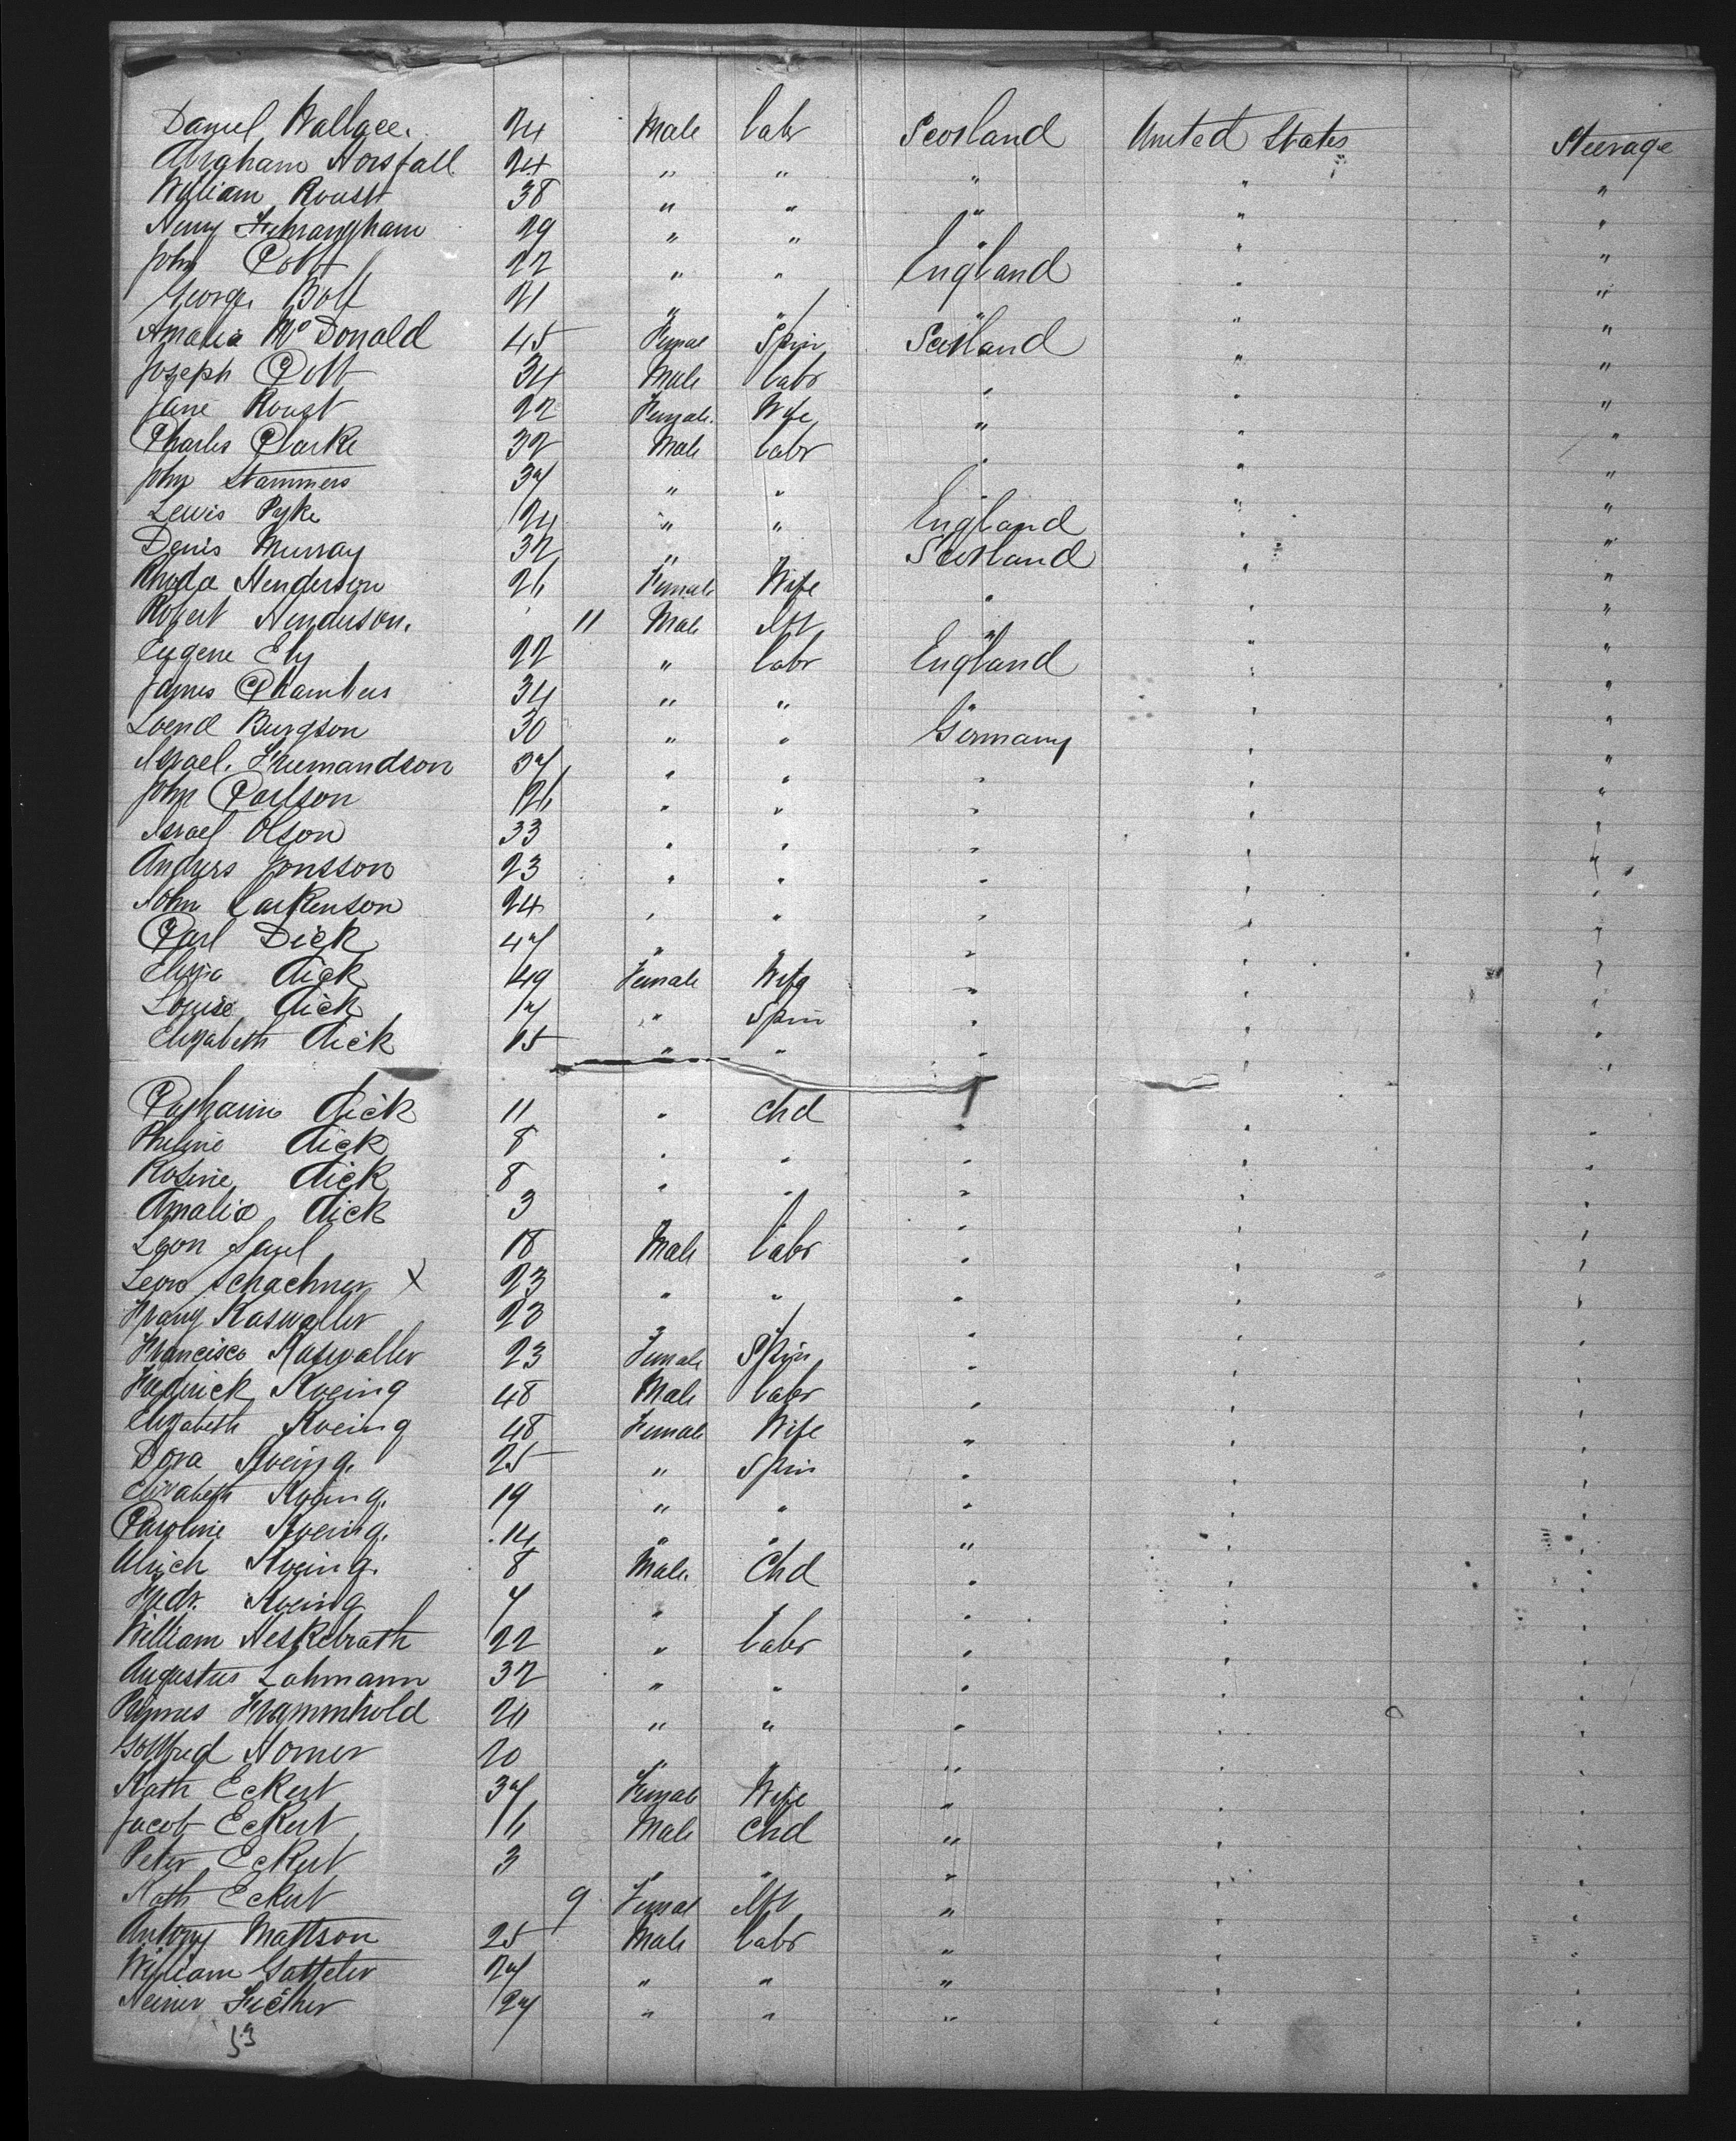 Daniel Wallace. 24 Male Labr Scotland United States Steerage
Abraham Horsfall 24 " " " " "
William Roust 38 " " " " "
Henry 29 " " " " "
John Cobb 22 " " England " "
George Bolt 21 " " " " "
Amalia McDonald 45 Femal Spin Scotland " "
Joseph Cobb 34 Male Labr " " "
Jane Roust 22 Female. Wife " " "
Charles Clarke 32 Male Labr " " "
John Stammers 37 " " " " "
Lewis Pyke 24 " " England " "
Denis Murray 32 " " Scotland " "
Rhoda Henderson 26 Female Wife " " "
Robert Henderson. 11 Male Inft " " "
Eugene Ely 22 " Labr England " "
James Chambers 34 " " " " "
Svend Burgson 30 " " Germany " "
Israel. 37 " " " " "
John Carlson 26 " " " " "
Israel Olson 33 " " " " "
Anders Jonsson 23 " " " " "
John Larkenson 24 " " " " "
Carl Dick 47 " " " " "
Eliza Dick 49 Female Wife " " "
Louise Dick 17 " Spin " " "
Elizabeth Dick 15 " " " " "
Dick 11 " Chd " " "
Philine Dick 8 " " " " "
Rosine Dick 8 " " " " "
Amalia Dick 3 " " " " "
Leon 18 Male Labr " " "
Leon Schachner X 23 " " " " "
Franz Kaswaller 23 " " " " "
Francisco Kaswaller 23 Female Spin " " "
Frederick Koeing 48 Male Labr " " "
Elizabeth Koeing 48 Female Wife " " "
Dora Koeing. 25 " Spin " " "
Elizabeth Koeing. 19 " " " " "
Caroline Koeing. 14 " " " " "
Ulrich Koeing. 8 Male Chd " " "
Fredr. Koeing 7 " " " " "
William Heskelrath 22 " Labr " " "
Augustus Lohmann 32 " " " " "
Primus Frammhold 20 " " " " "
Gottfred Horner 20 " " " " "
Kath Eckert 37 Female Wife " " "
Jacob Eckert 6 Male Chd " " "
Peter Eckert 3 " " " " "
Kath Eckert 9 Femal Inft " " "
Antony Mattson 25 Male Labr " " "
William 27 " " " " "
Heiner Ficther 27 " " " " "
53